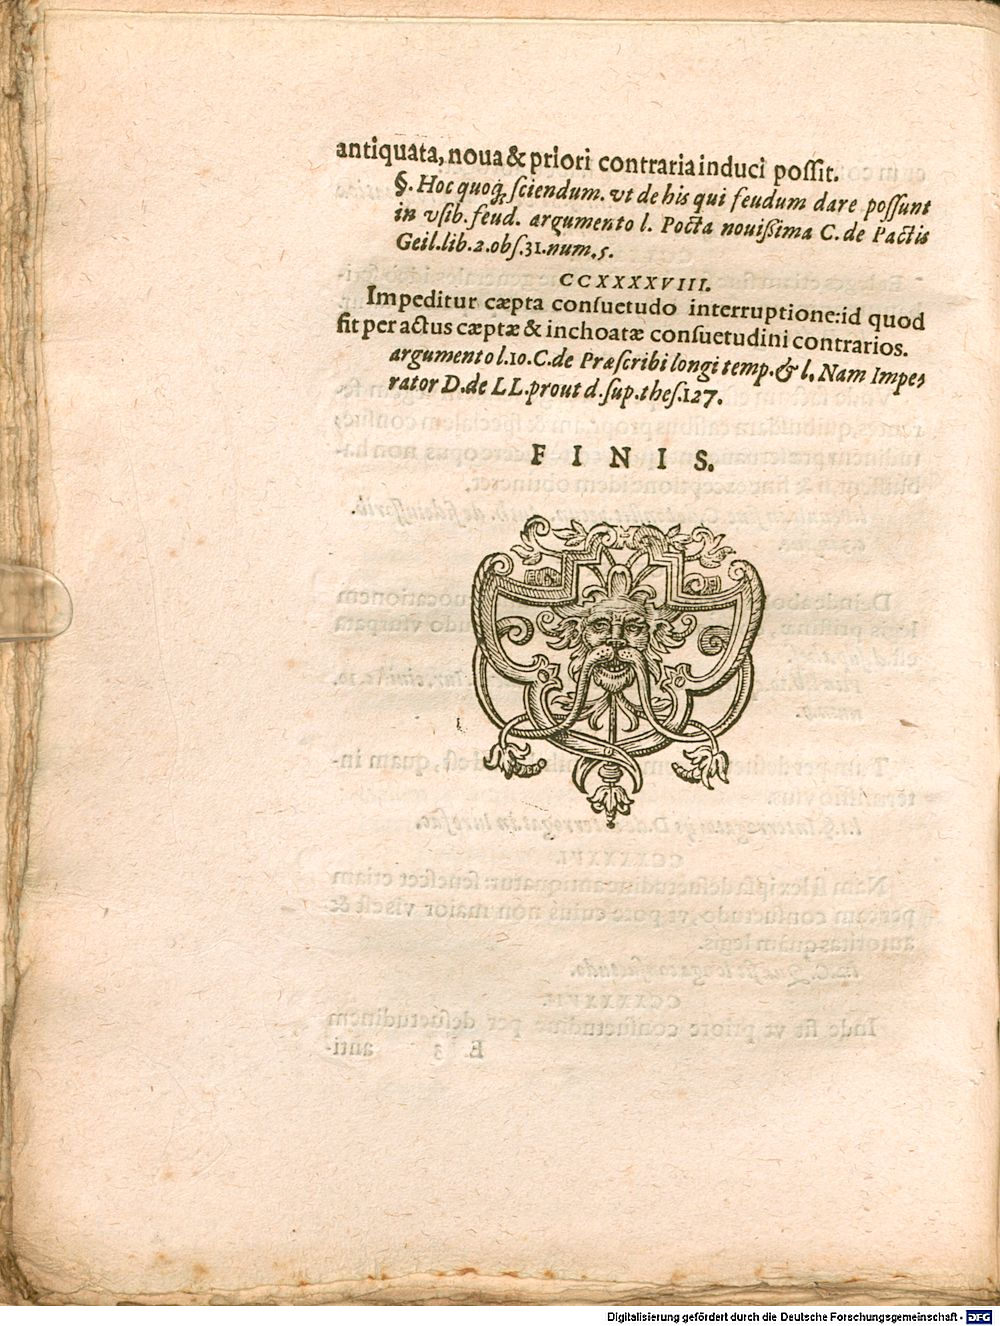 antiquata, noua & priori contraria induci possit.
§. Hoc quoq; sciendum. vt de his qui feudum dare possunt
in vsib. feud. argumento l. Pacta nouißima C. de Pactis
Geil. lib. 2. obs. 31. num. 5.
CCXXXXVIII.
Impeditur cæpta consuetudo interruptione: id quod
fit per actus cæptæ & inchoatæ consuetudini contrarios.
argumento l. 10. C. de Præscribi longi temp. & l. Nam Impe,
rator D. de LL. prout d. sup. thes. 127.
FINIS.
Digitalisierung gefördert durch die Deutsche Forschungsgemeinschaft - DFG